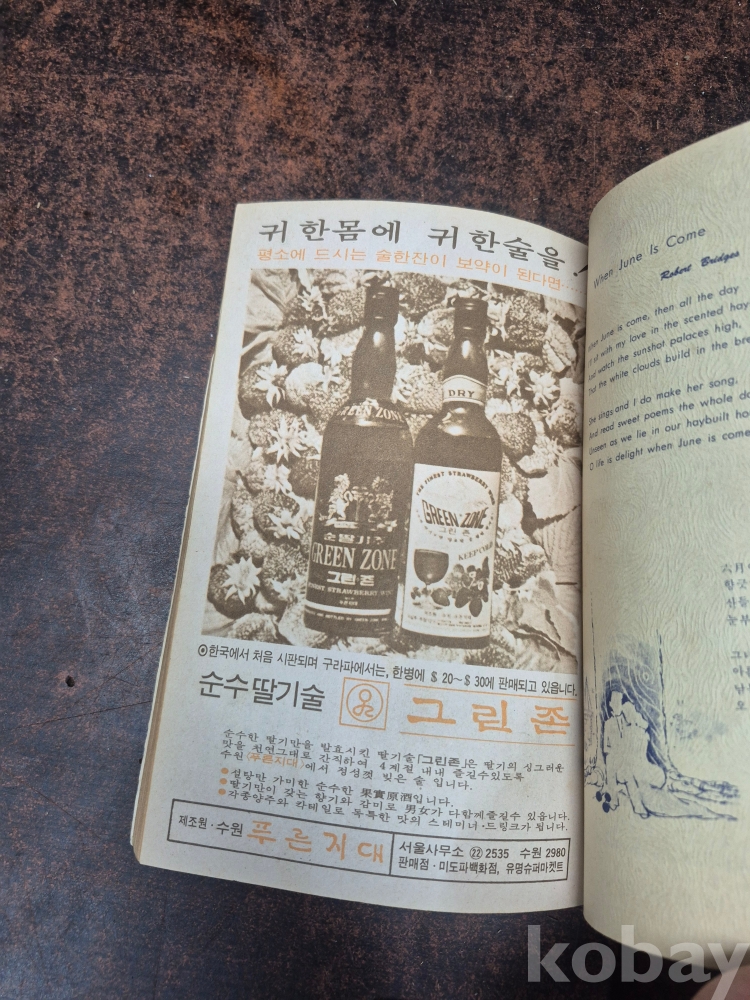 귀한몸에 귀한술을
평소에 드시는 술한잔이 보약이 된다면…
GREEN ZONE
순딸기주
GREEN ZONE
그린·존
FINEST STRAWBERRY
DRY
THE FINEST STRAWBERRY
GREEN ZONE
그린 존
KEEP
⊙한국에서 처음 시판되며 구라파에서는, 한병에 $ 20~$ 30에 판매되고 있읍니다.
순수딸기술 그린존
순수한 딸기만을 발효시킨 딸기술「그린존」은 딸기의 싱그러운
맛을 천연그대로 간직하여 4계절 내내 즐길수있도록
수원〈푸른지대〉에서 정성껏 빚은 술 입니다.
●설탕만 가미한 순수한 果實原酒입니다.
●딸기만이 갖는 향기와 감미로 男女가 다함께즐길수 있읍니다.
●각종양주와 칵테일로 독특한 맛의 스테미너·드링크가 됩니다.
제조원·수원 푸른지대
서울사무소 ㉒ 2535 수원 2980
판매점·미도파백화점, 유명슈퍼마켓트
When June Is Come
Robert Bridges
When June is come, then all the day
I'll sit with my love in the scented hay
And watch the sunshot palaces high,
That the white clouds build in the
She sings and I do make her song,
And read sweet poems the whole
Unseen as we lie in our haybuilt
O life is delight when June is come
六月
kobay